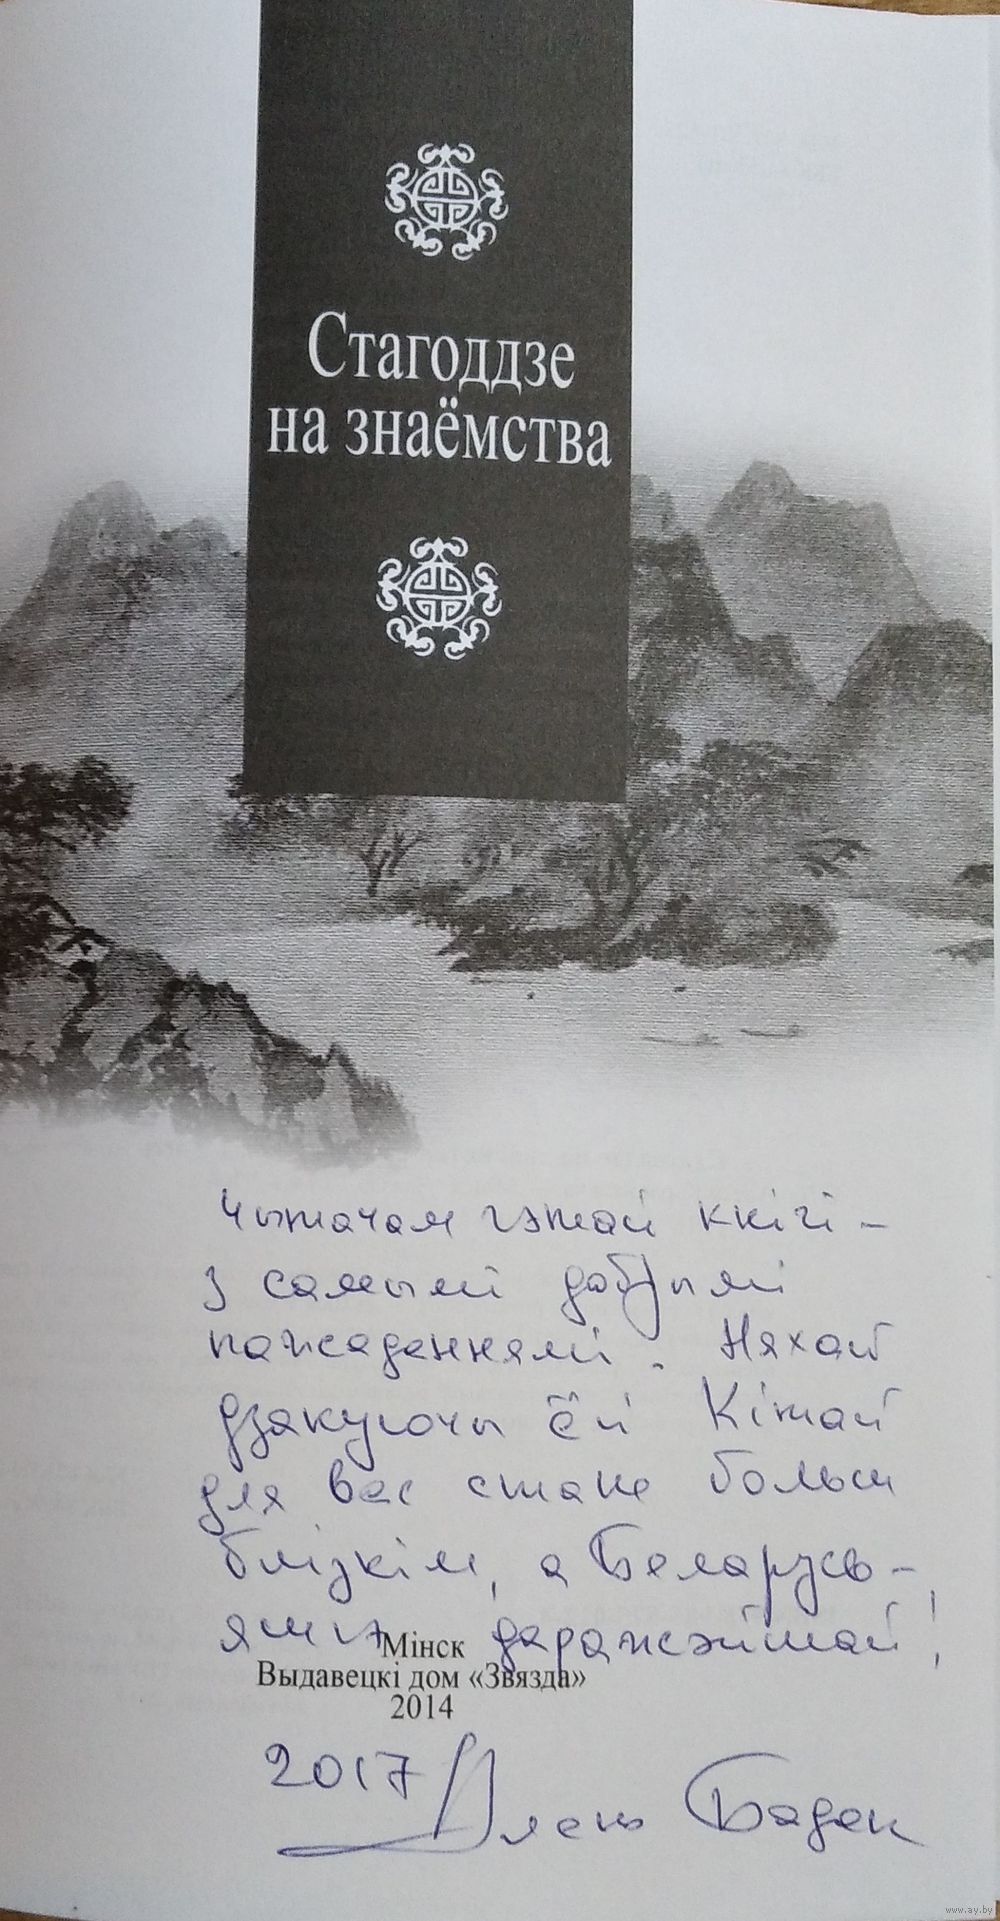 Стагоддзе
на знаёмства
Чытачам гэтай кнігі –
з самымі добрымі
пажаданнямі. Няхай
дзякуючы ёй Кітай
для вас стане больш
блізкім, а Беларусь –
яшчэ даражэйшай!
Мінск
Выдавецкі дом «Звязда»
2014
2017 Алесь Бадак
www.ay.by